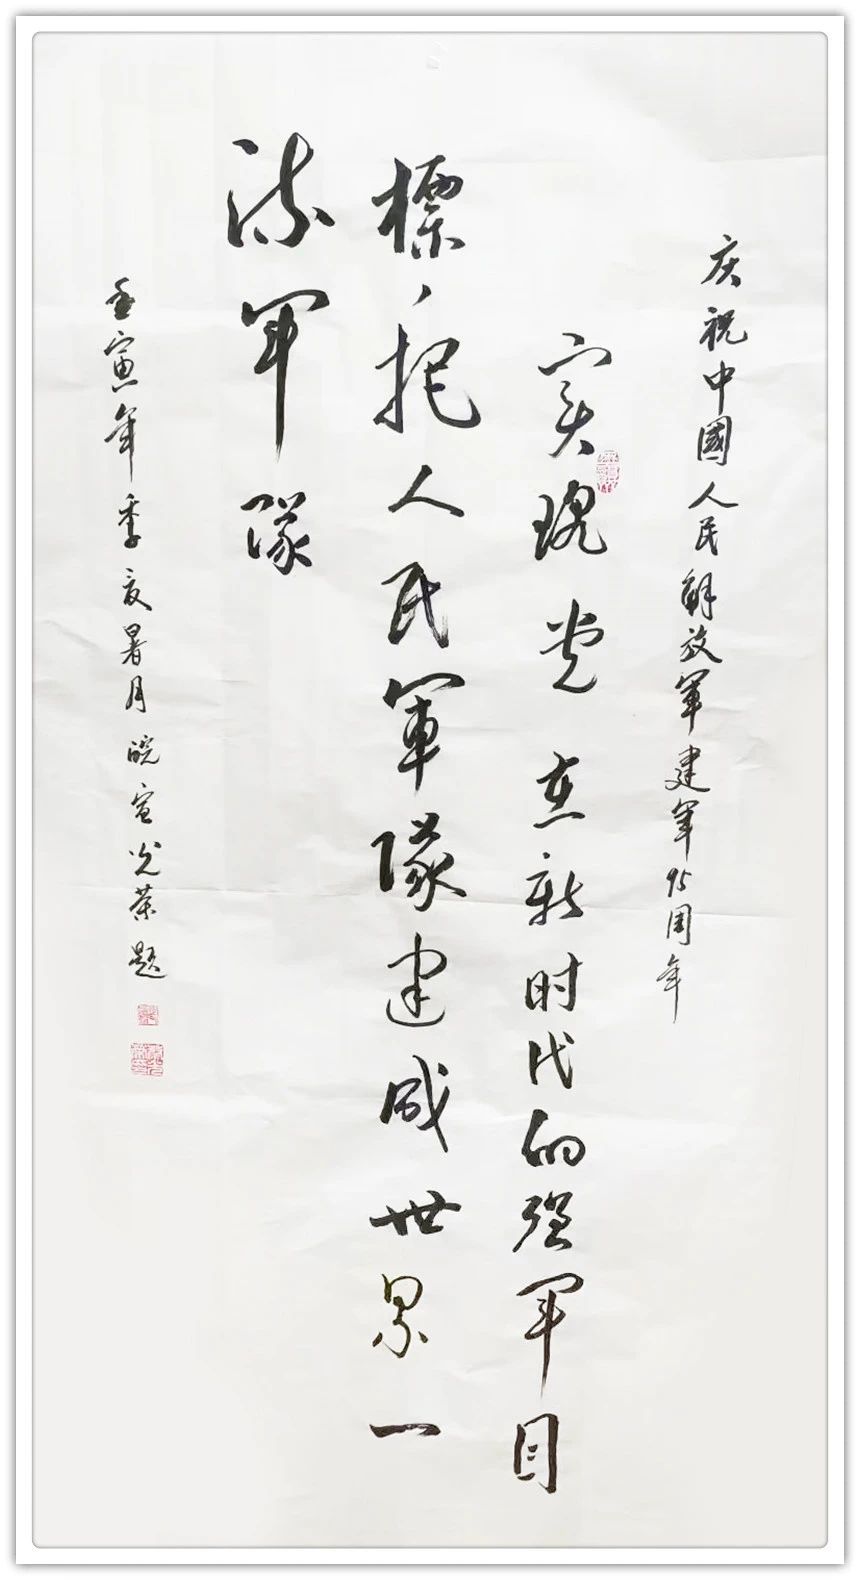 庆祝中國人民解放軍建軍95周年
实现党在新时代的强军目
標，把人民軍隊建成世界一
流军隊
壬寅年季夏暑月皖宣光荣題